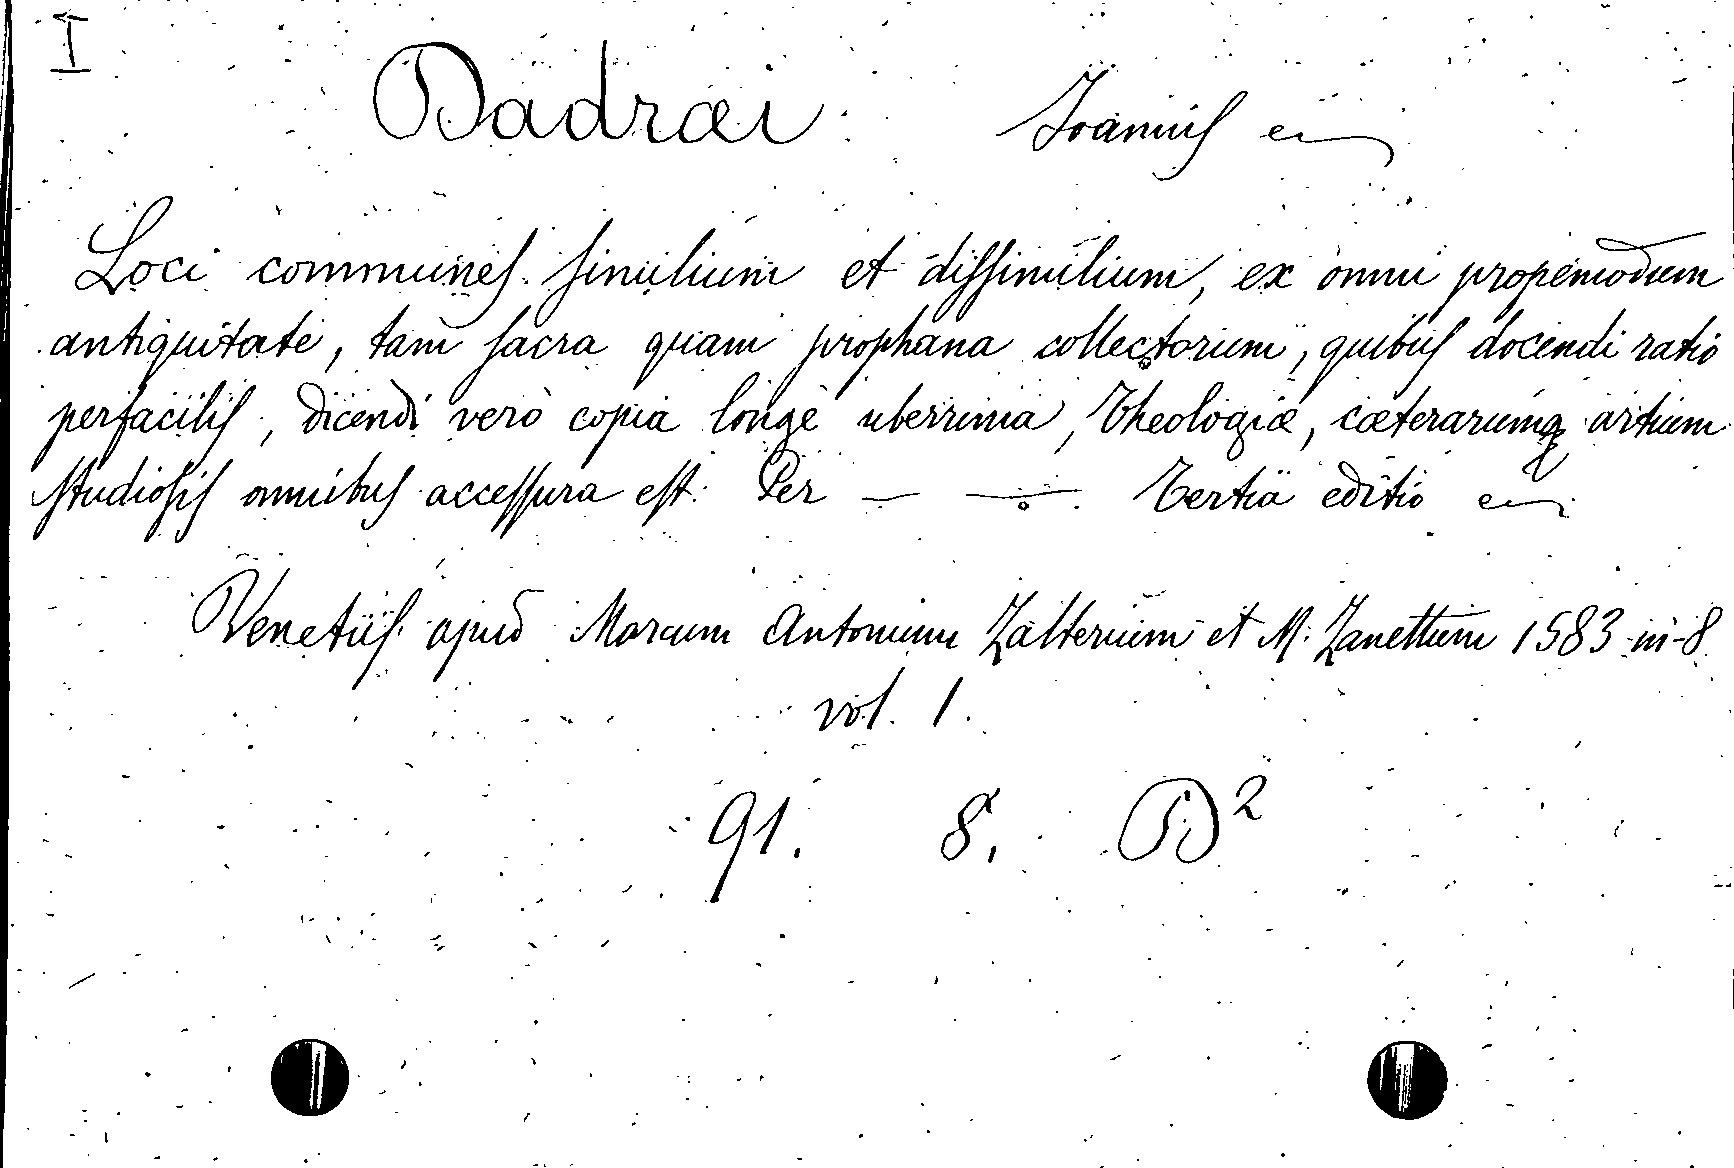 I
Dadræi Joannis en
Loci communes similium et dissimilium, ex omni propemodum
antiquitate, tam sacra quam prophana collectorum, quibus docendi ratio
perfacilis, dicendi verò copia longè uberrima, Theologiæ, cæterarumq artium
studiosis omnibus accessura est. Per — —. Tertia editio en
Venetiis apud Marcum Antonium Zalterium et M. Zanettum 1583 in-8
vol. 1.
91. 8. D²